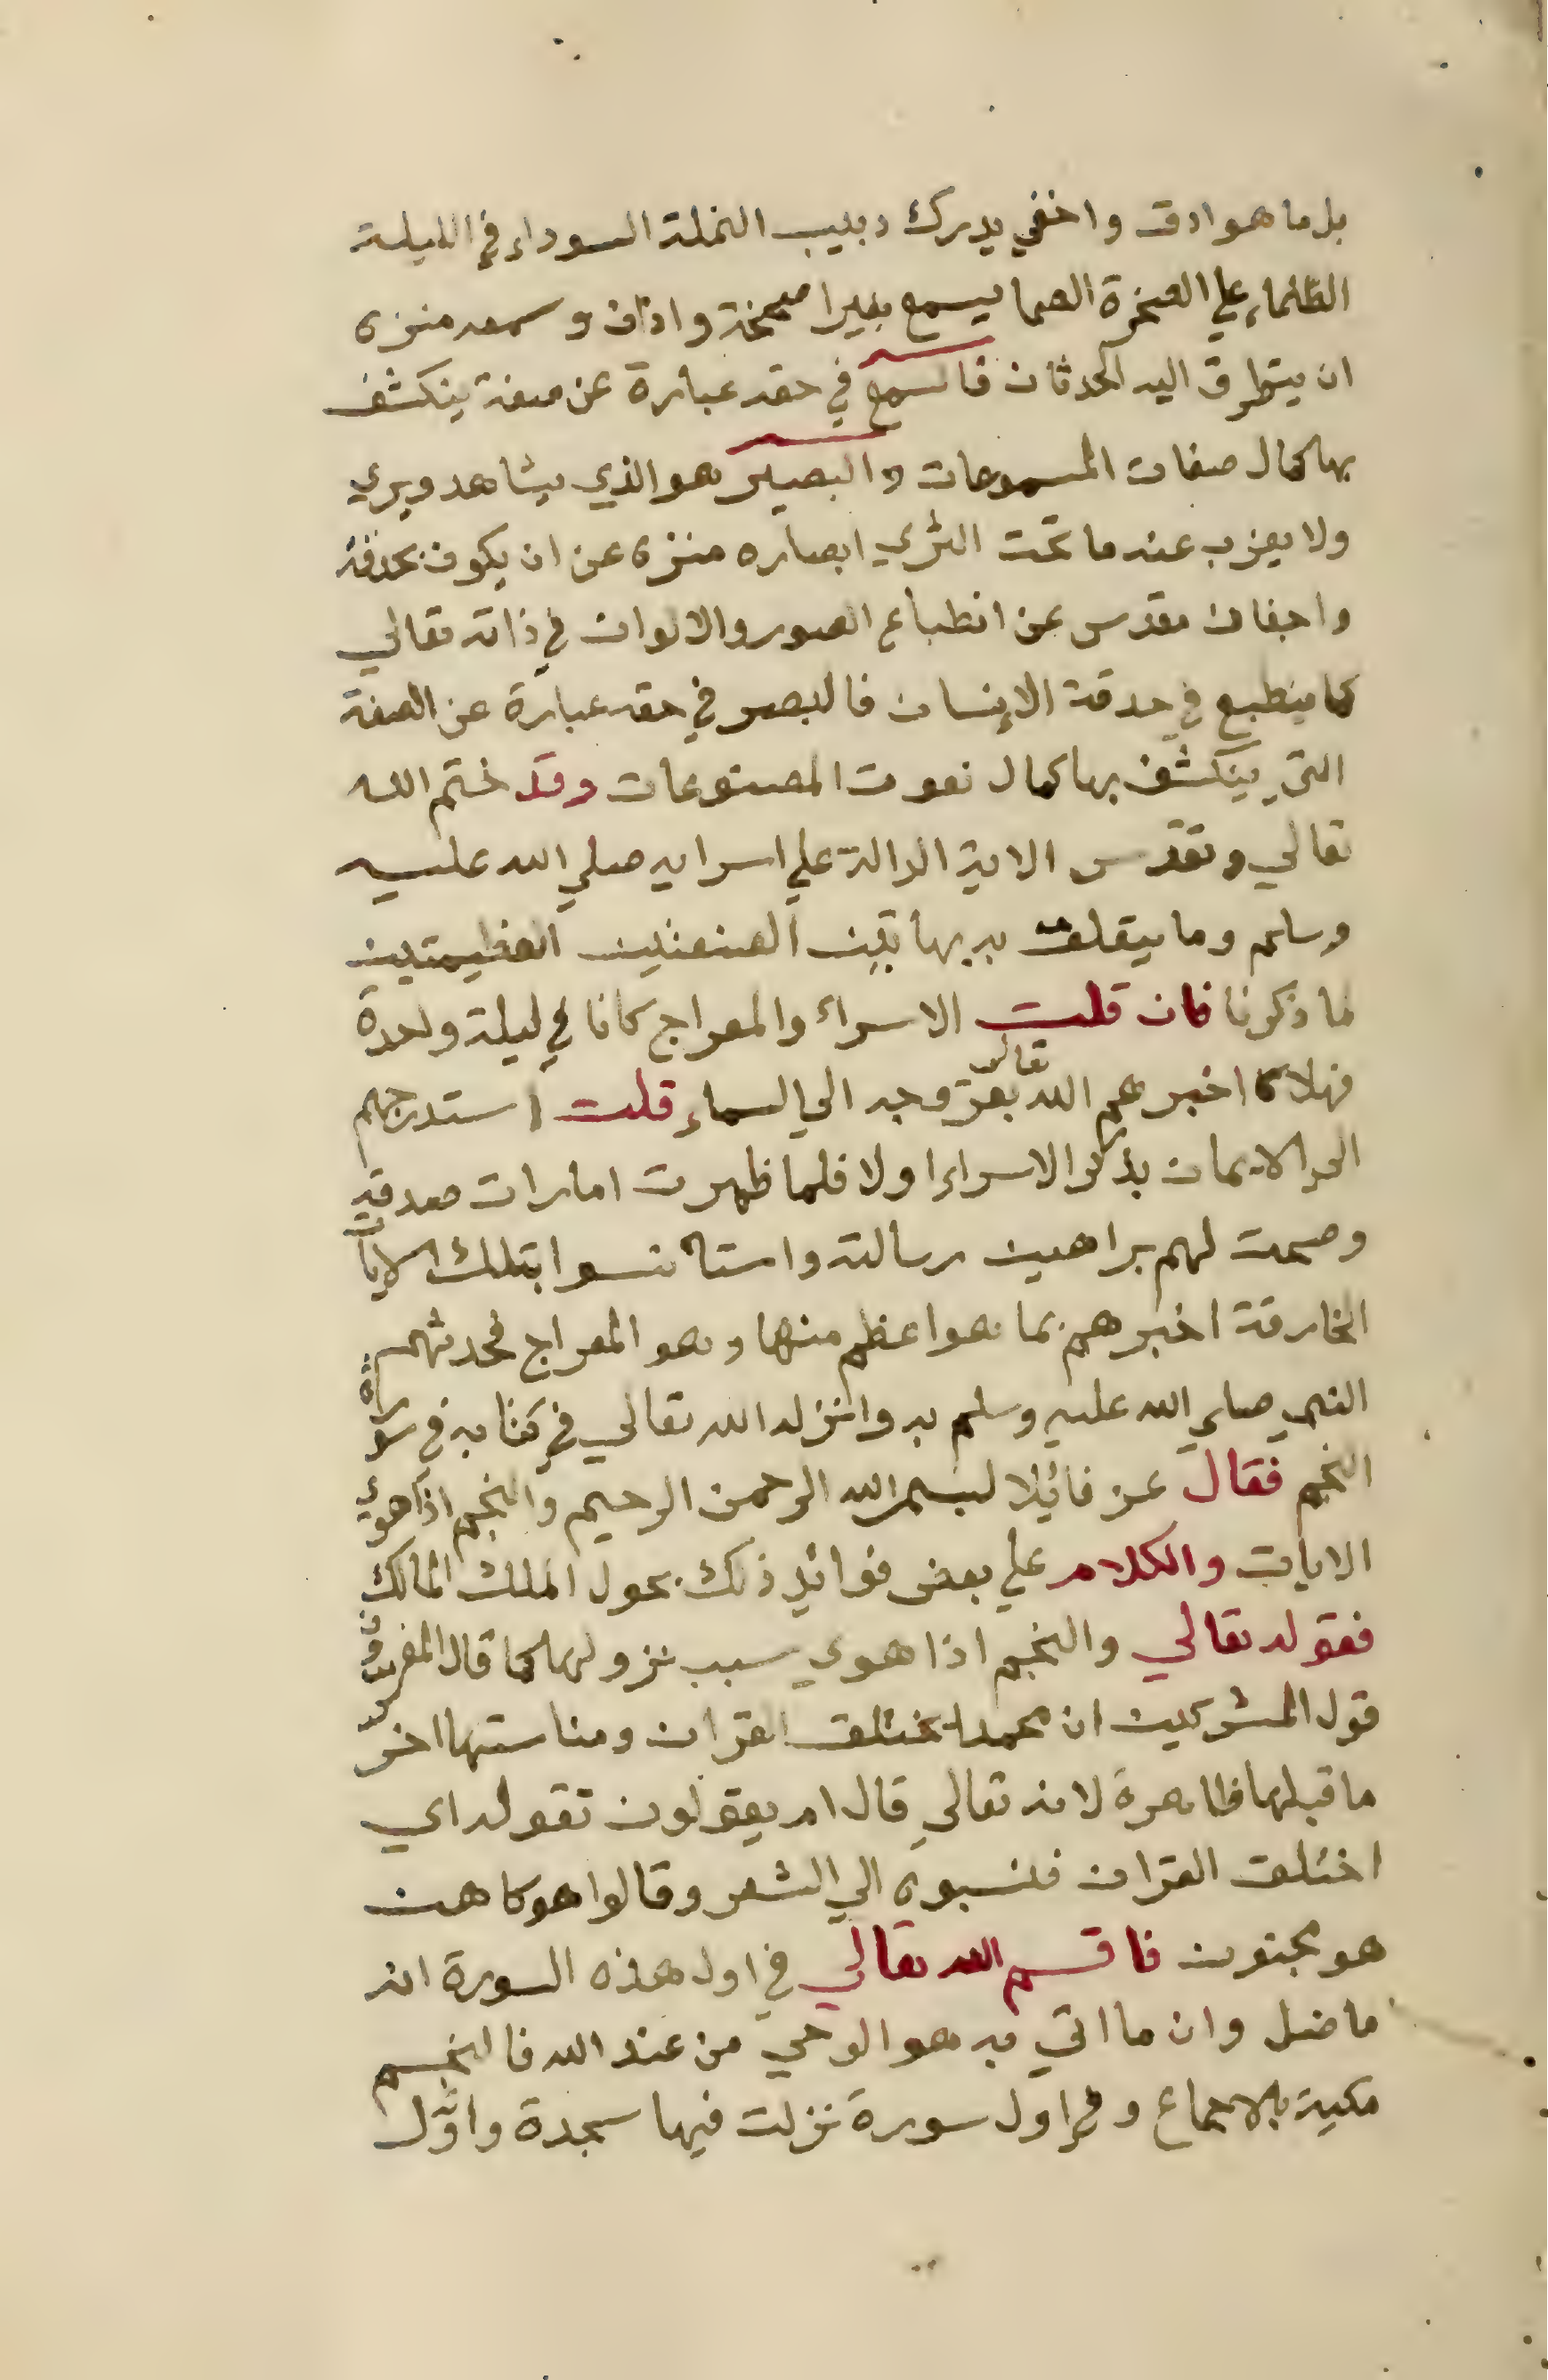 بل ما هو ادق واخفي يدرك دبيب النملة السوداء في الليلة
الظلماء علي الصخرة الصما يسمع بغير اصمخة واذان وسمعه منزه
ان يتطرق اليه الحدثان فالسمع في حقه عبارة عن صفة ينكشف
بها كمال صفات المسموعات والبصير هو الذي يشاهد ويري
ولا يعزب عنه ما تحت الثري ابصاره منزه عن ان يكون بحدقة
واجفان مقدس عن انطباع الصور والالوان في ذاته تعالي
كما ينطبع في حدقة الإنسان فالبصر في حقه عبارة عن الصفة
التي ينكشف بها كمال نعوت المصنوعات وقد ختم الله
تعالي وتقدس الاية الدالة علي اسرايه صلي الله عليه
وسلم وما يتعلق به بهاتين الصفتين العظيمتين
لما ذكرنا فان قلت الاسراء والمعراج كانا في ليلة واحدة
فهلا اخبرهم الله تعالي بعروجه الي السماء قلت استدرجهم
الي الايمان بذكر الاسراء اولا فلما ظهرت امارات صدقه
وصحت لهم براهين رسالته واستانسوا بتلك الايات
الخارقة اخبرهم بما هو اعظم منها وهو المعراج فحدثهم
النبي صلي الله عليه وسلم به وانزله الله تعالي في كتابه في سورة
النجم فقال عز قائلا بسم الله الرحمن الرحيم والنجم اذا هوي
الايات والكلام علي بعض فوائد ذلك بحول الملك المالك
فقوله تعالي والنجم اذا هوي سبب نزولها كما قال المفسرون
قول المشركين ان محمدا يختلق القران ومناسبتها اخر
ما قبلها ظاهرة لانه تعالي قال ام يقولون تقوله اي
اختلق القران فنسبوه الي الشعر وقالوا هو كاهن
هو مجنون فاقسم الله تعالي في اول هذه السورة انه
ما ضل وان ما اتي به هو الوحي من عند الله فالنجم
مكية بالاجماع وهي اول سورة نزلت فيها سجدة واول